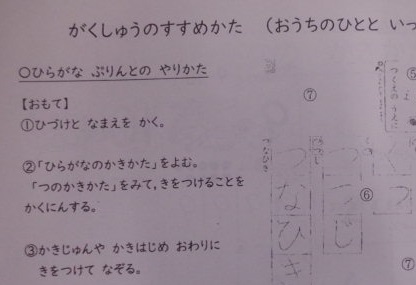 がくしゅうのすすめかた （おうちのひとと いっ
○ひらがな ぷりんとの やりかた
【おもて】
①ひづけと なまえを かく。
②「ひらがなのかきかた」をよむ。
「つのかきかた」をみて,きをつけることを
かくにんする。
③かきじゅんや かきはじめ おわりに
きをつけて なぞる。
⑦
⑤
つくえの うえに
く
つ
⑥
つ
つ
じ
つ
な
ひ
き
⑦